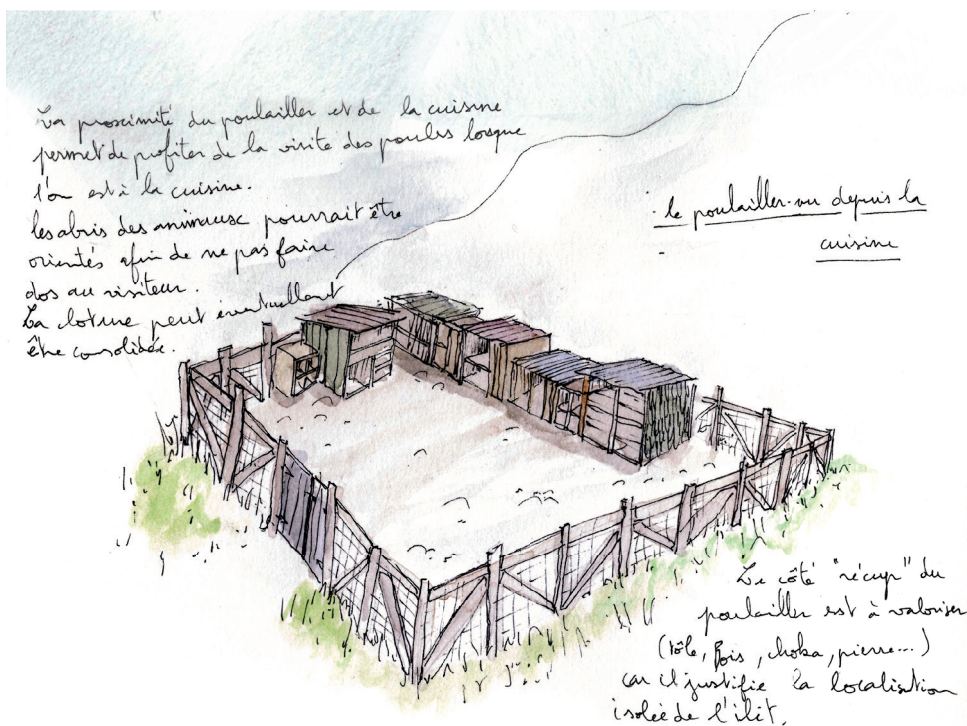 La proximité du poulailler et de la cuisine
permet de profiter de la visite des poules losque
l'on est à la cuisine.
les abris des animaux pourrait être
orientés afin de ne pas faire
dos au visiteur.
La cloture peut éventuellement
être consolidée.
le poulailler vu depuis la
cuisine
Le côté "récup" du
poulailler est à valoriser
(tôle, bois, choka, pierre...)
car il justifie la localisation
isolée de l'ilêt.